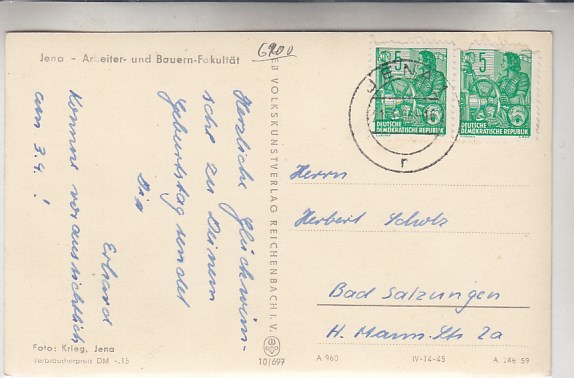 Jena - Arbeiter- und Bauern-Fakultät
6900
Herzliche Glückwün-
sche zu Deinem
Geburtstag sendet
Dir
Erhard
Kommt voraussichtlich
am 3.4. !
Foto: Krieg, Jena
Verbraucherpreis DM -.15
VOLKSKUNSTVERLAG REICHENBACH I. V.
10/699
5
DEUTSCHE
DEMOKRATISCHE REPUBLIK
5
DEUTSCHE
DEMOKRATISCHE REPUBLIK
JENA
r
Herrn
Herbert Scholz
Bad Salzungen
H. Mann-Str 2a
A 960
IV-14-45
A 246 59